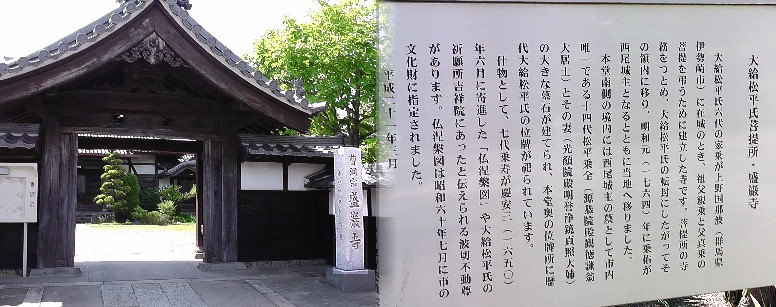 大給松平氏菩提所・盛巌寺
大給松平氏六代の家乗が上野国那波（群馬県
伊勢崎市）に在城のとき、祖父親乗と父真乗の
菩提を弔うために建立した寺です。菩提所の寺
務をつとめ、大給松平氏の転封にしたがってそ
の領内に移り、明和元（一七六四）年に乗佑が
西尾城主となるとともに当地へ移りました。
本堂南側の境内には西尾城主の墓として市内
唯一である十四代松平乗全（源恭院殿
大居士）とその妻（光顔院殿明誉浄鏡貞照大姉）
の大きな墓石が建てられ、本堂奥の位牌所に歴
代大給松平氏の位牌が祀られています。
什物として、七代乗寿が慶安三（一六五〇）
年六月に寄進した「仏涅槃図」や大給松平氏の
祈願所吉祥院にあったと伝えられる波切不動尊
があります。仏涅槃図は昭和六十年七月に市の
文化財に指定されました。
平成二十一年三月
盛巌寺